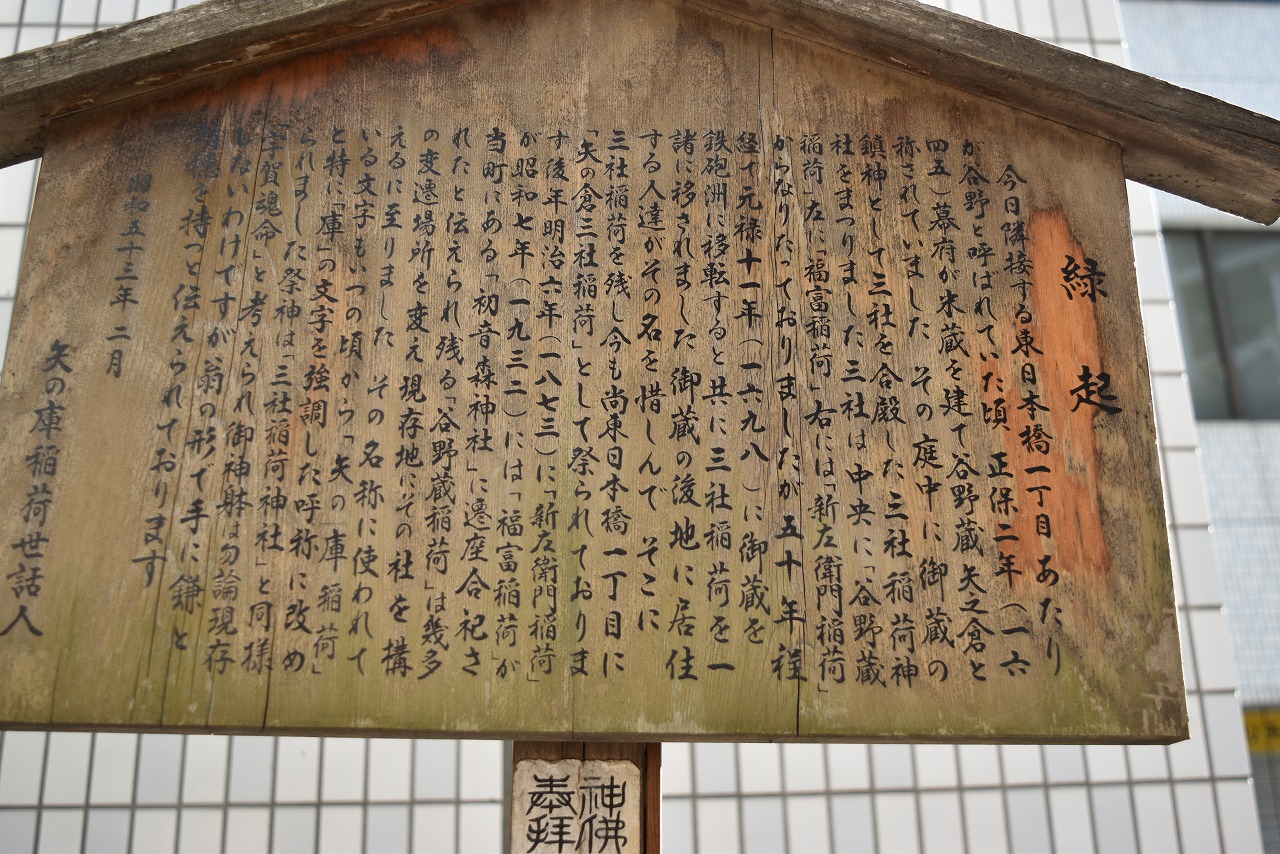 縁起
今日隣接する東日本橋一丁目あたり
が谷野と呼ばれていた頃 正保二年(一六
四五)幕府が米蔵を建て谷野蔵矢之倉と
称されていました その庭中に御蔵の
鎮神として三社を合殿した三社稲荷神
社をまつりました三社は中央に「谷野蔵
稲荷」左に「福富稲荷」右には「新左衛門稲荷」
からなりたっておりましたが 五十年程
経て元禄十一年(一六九八)に御蔵を
鉄砲洲に移転すると共に三社稲荷を一
諸に移されました御蔵の後地に居住
する人達がその名を惜しんで そこに
三社稲荷を残し今も尚東日本橋一丁目に
「矢の倉三社稲荷」として祭られておりま
す後年明治六年(一八七三)に「新左衛門稲荷」
が昭和七年(一九三二)には「福富稲荷」が
当町にある「初音森神社」に遷座合祀さ
れたと伝えられ残る「谷野蔵稲荷」は幾多
の変遷場所を変え現存地にその社を構
えるに至りました その名称に使われて
いる文字もいつの頃から「矢の庫稲荷」
と特に「庫」の文字を強調した呼称に改め
られました祭神は「三社稲荷神社」と同様
「宇賀魂命」と考えられ御神躰は勿論現存
しないわけですが翁の形で手に鎌と
稲穂を持つと伝えられております
昭和五十三年 二月
矢の庫稲荷世話人
神佛
奉拝